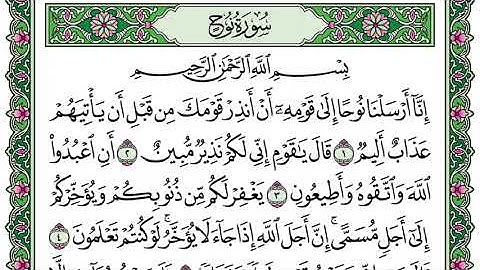 سُورَةُ نُوحٍ
بِسْمِ اللَّهِ الرَّحْمَٰنِ الرَّحِيمِ
إِنَّا أَرْسَلْنَا نُوحًا إِلَىٰ قَوْمِهِ أَنْ أَنذِرْ قَوْمَكَ مِن قَبْلِ أَن يَأْتِيَهُمْ
عَذَابٌ أَلِيمٌ ١ قَالَ يَا قَوْمِ إِنِّي لَكُمْ نَذِيرٌ مُّبِينٌ ٢ أَنِ اعْبُدُوا
اللَّهَ وَاتَّقُوهُ وَأَطِيعُونِ ٣ يَغْفِرْ لَكُم مِّن ذُنُوبِكُمْ وَيُؤَخِّرْكُمْ
إِلَىٰ أَجَلٍ مُّسَمًّى ۚ إِنَّ أَجَلَ اللَّهِ إِذَا جَاءَ لَا يُؤَخَّرُ ۖ لَوْ كُنتُمْ تَعْلَمُونَ ٤